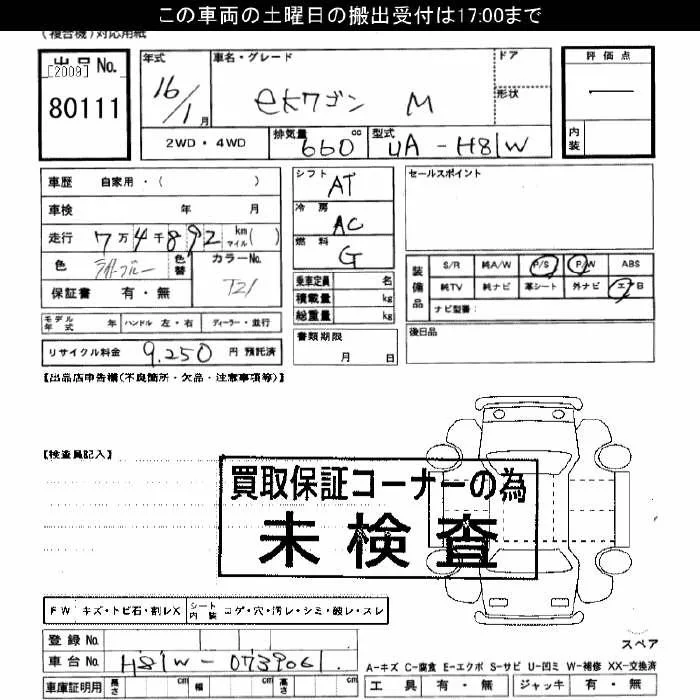 この車両の土曜日の搬出受付は17:00まで
(複合機)対応用紙
出品No.
[2009]
80111
年式
16/1月
車名・グレード
eKワゴン M
ドア
形状
評価点
—
内装
2WD・4WD
排気量 660 cc
型式 UA-H81W
車歴 自家用・( )
車検 年 月
走行 7万4千892 km マイル( )
色 ライトブルー 色替
カラーNo. T21
保証書 有・無
シフト AT
冷房 AC
燃料 G
乗車定員 名
積載量 kg
総重量 kg
セールスポイント
装備品
S/R 純A/W P/S P/W ABS
純TV 純ナビ 革シート 外ナビ エアB
ナビ型番:
モデル年式 年 ハンドル 左・右 ディーラー・並行
リサイクル料金 9,250 円 預託済
書類期限
月 日
後日品
【出品店申告欄(不良箇所・欠品・注意事項等)】
【検査員記入】
買取保証コーナーの為
未検査
FW キズ・トビ石・割レX
シート内装 コゲ・穴・汚レ・シミ・破レ・スレ
登録No.
車台No. H81W-0739061
車庫証明用 長さ cm 幅 cm 高さ cm
スペア
A-キズ C-腐食 E-エクボ S-サビ U-凹ミ W-補修 XX-交換済
工具 有・無 ジャッキ 有・無